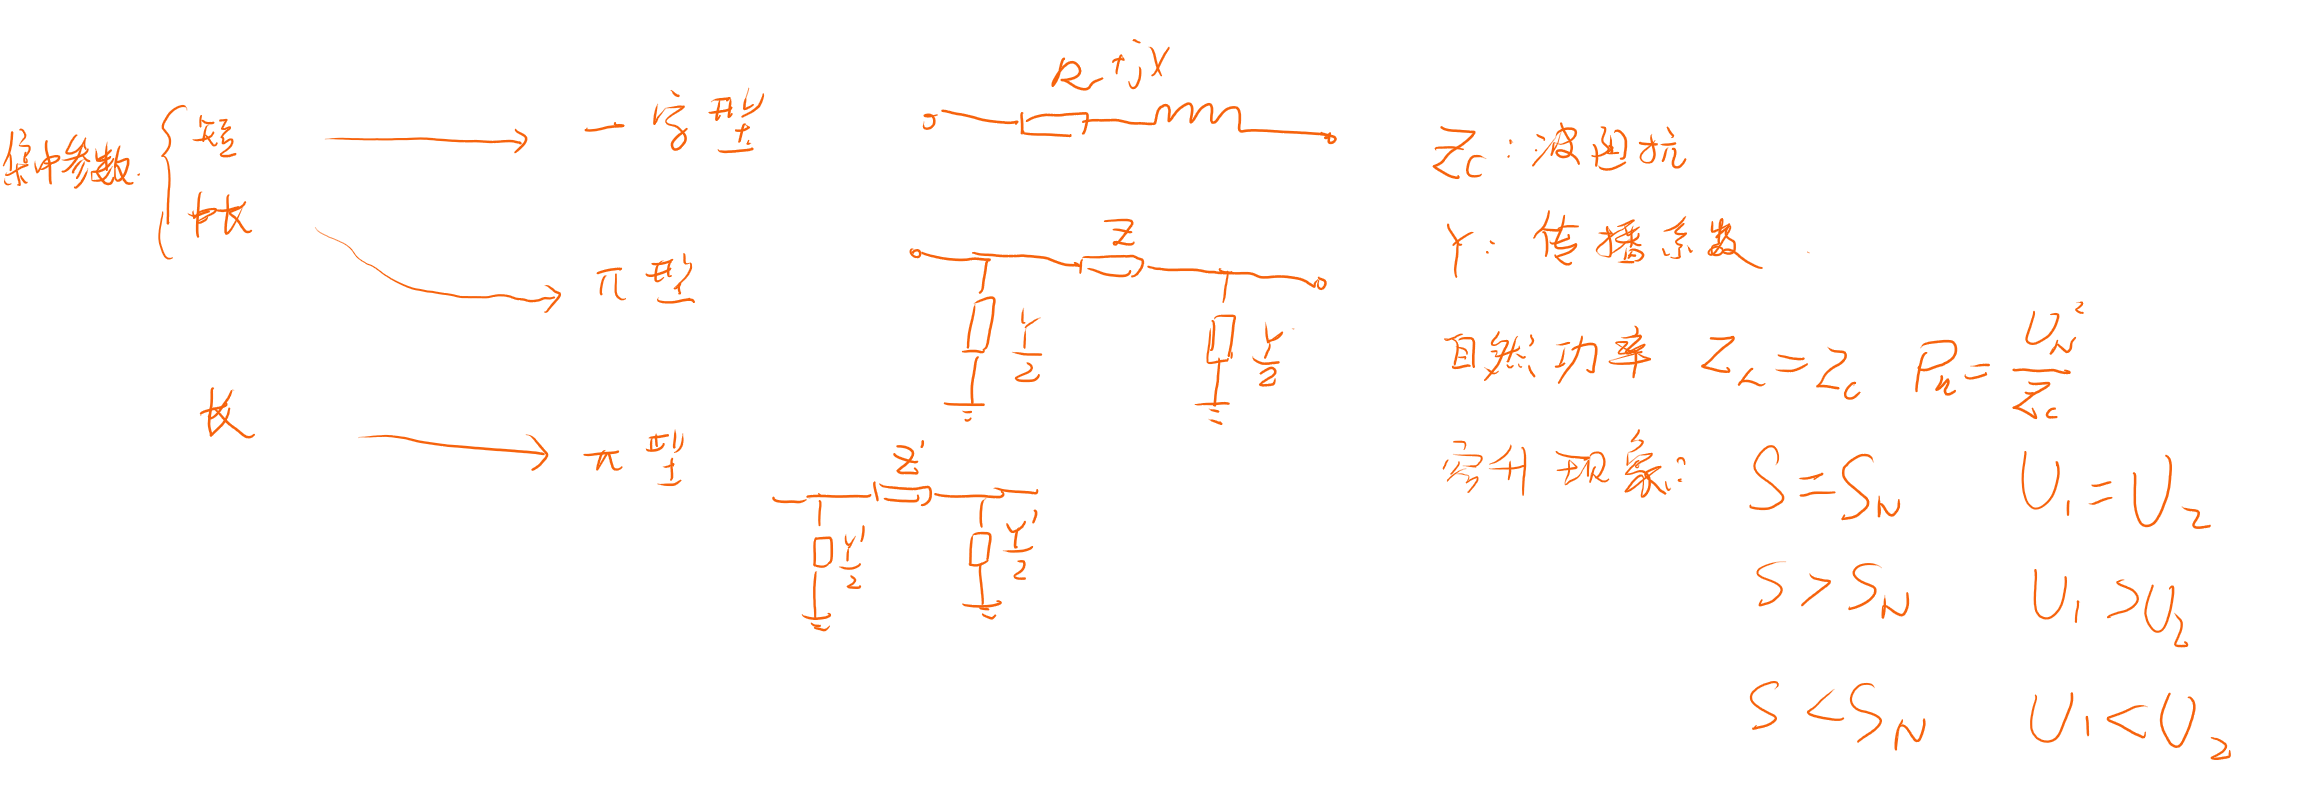 集中参数.
短
中长
长
一字型
π型
π型
R+jX
Z
Y/2
Y/2
Z'
Y'/2
Y'/2
Zc:波阻抗
γ:传播系数
自然功率 ZL=Zc Pn=UN²/Zc
空升现象: S=SN U1=U2
S>SN U1>U2
S<SN U1<U2